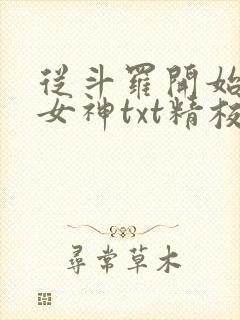 從斗羅開始
女神txt精校
尋常草木